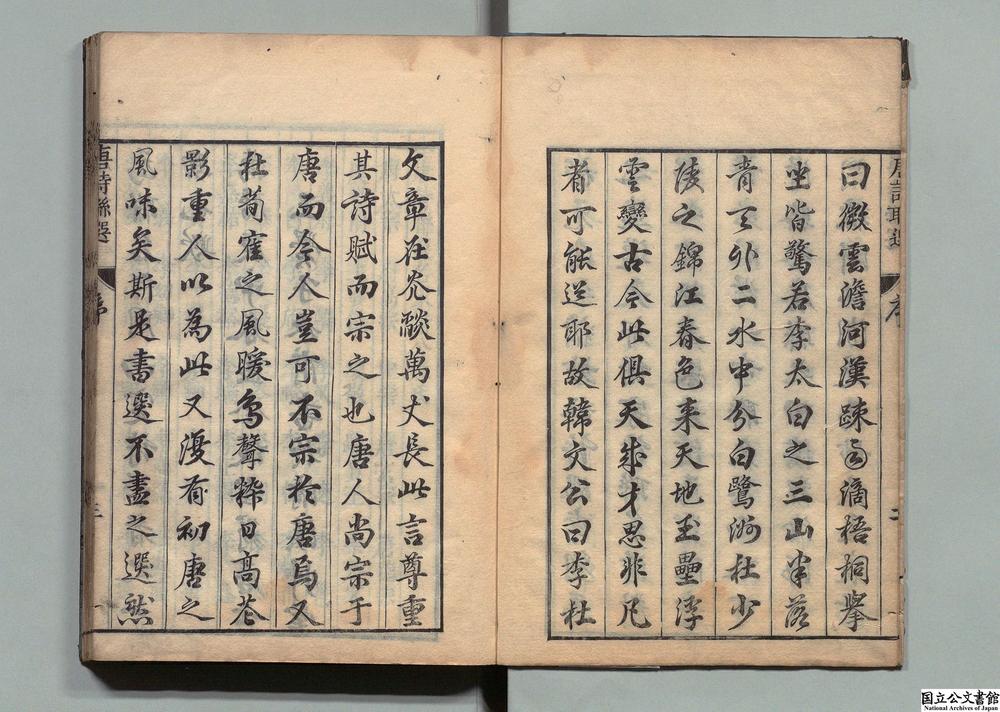 曰微雲澹河漢疎雨滴梧桐擧
坐皆驚若李太白之三山半落
青天外二水中分白鷺洲杜少
陵之錦江春色来天地玉壘浮
雲變古今此俱天成才思非凡
者可能送耶故韓文公曰李杜
文章在光燄萬丈長此言尊重
其詩賦而宗之也唐人尚宗于
唐而今人豈可不宗於唐焉又
杜荀寉之風暖鳥聲粹日高花
影重人以為此又漫有初唐之
風味矣斯是書選不盡之選然
唐詩聮選
序
二
唐詩聮選
序
三
国立公文書館
National Archives of Japan